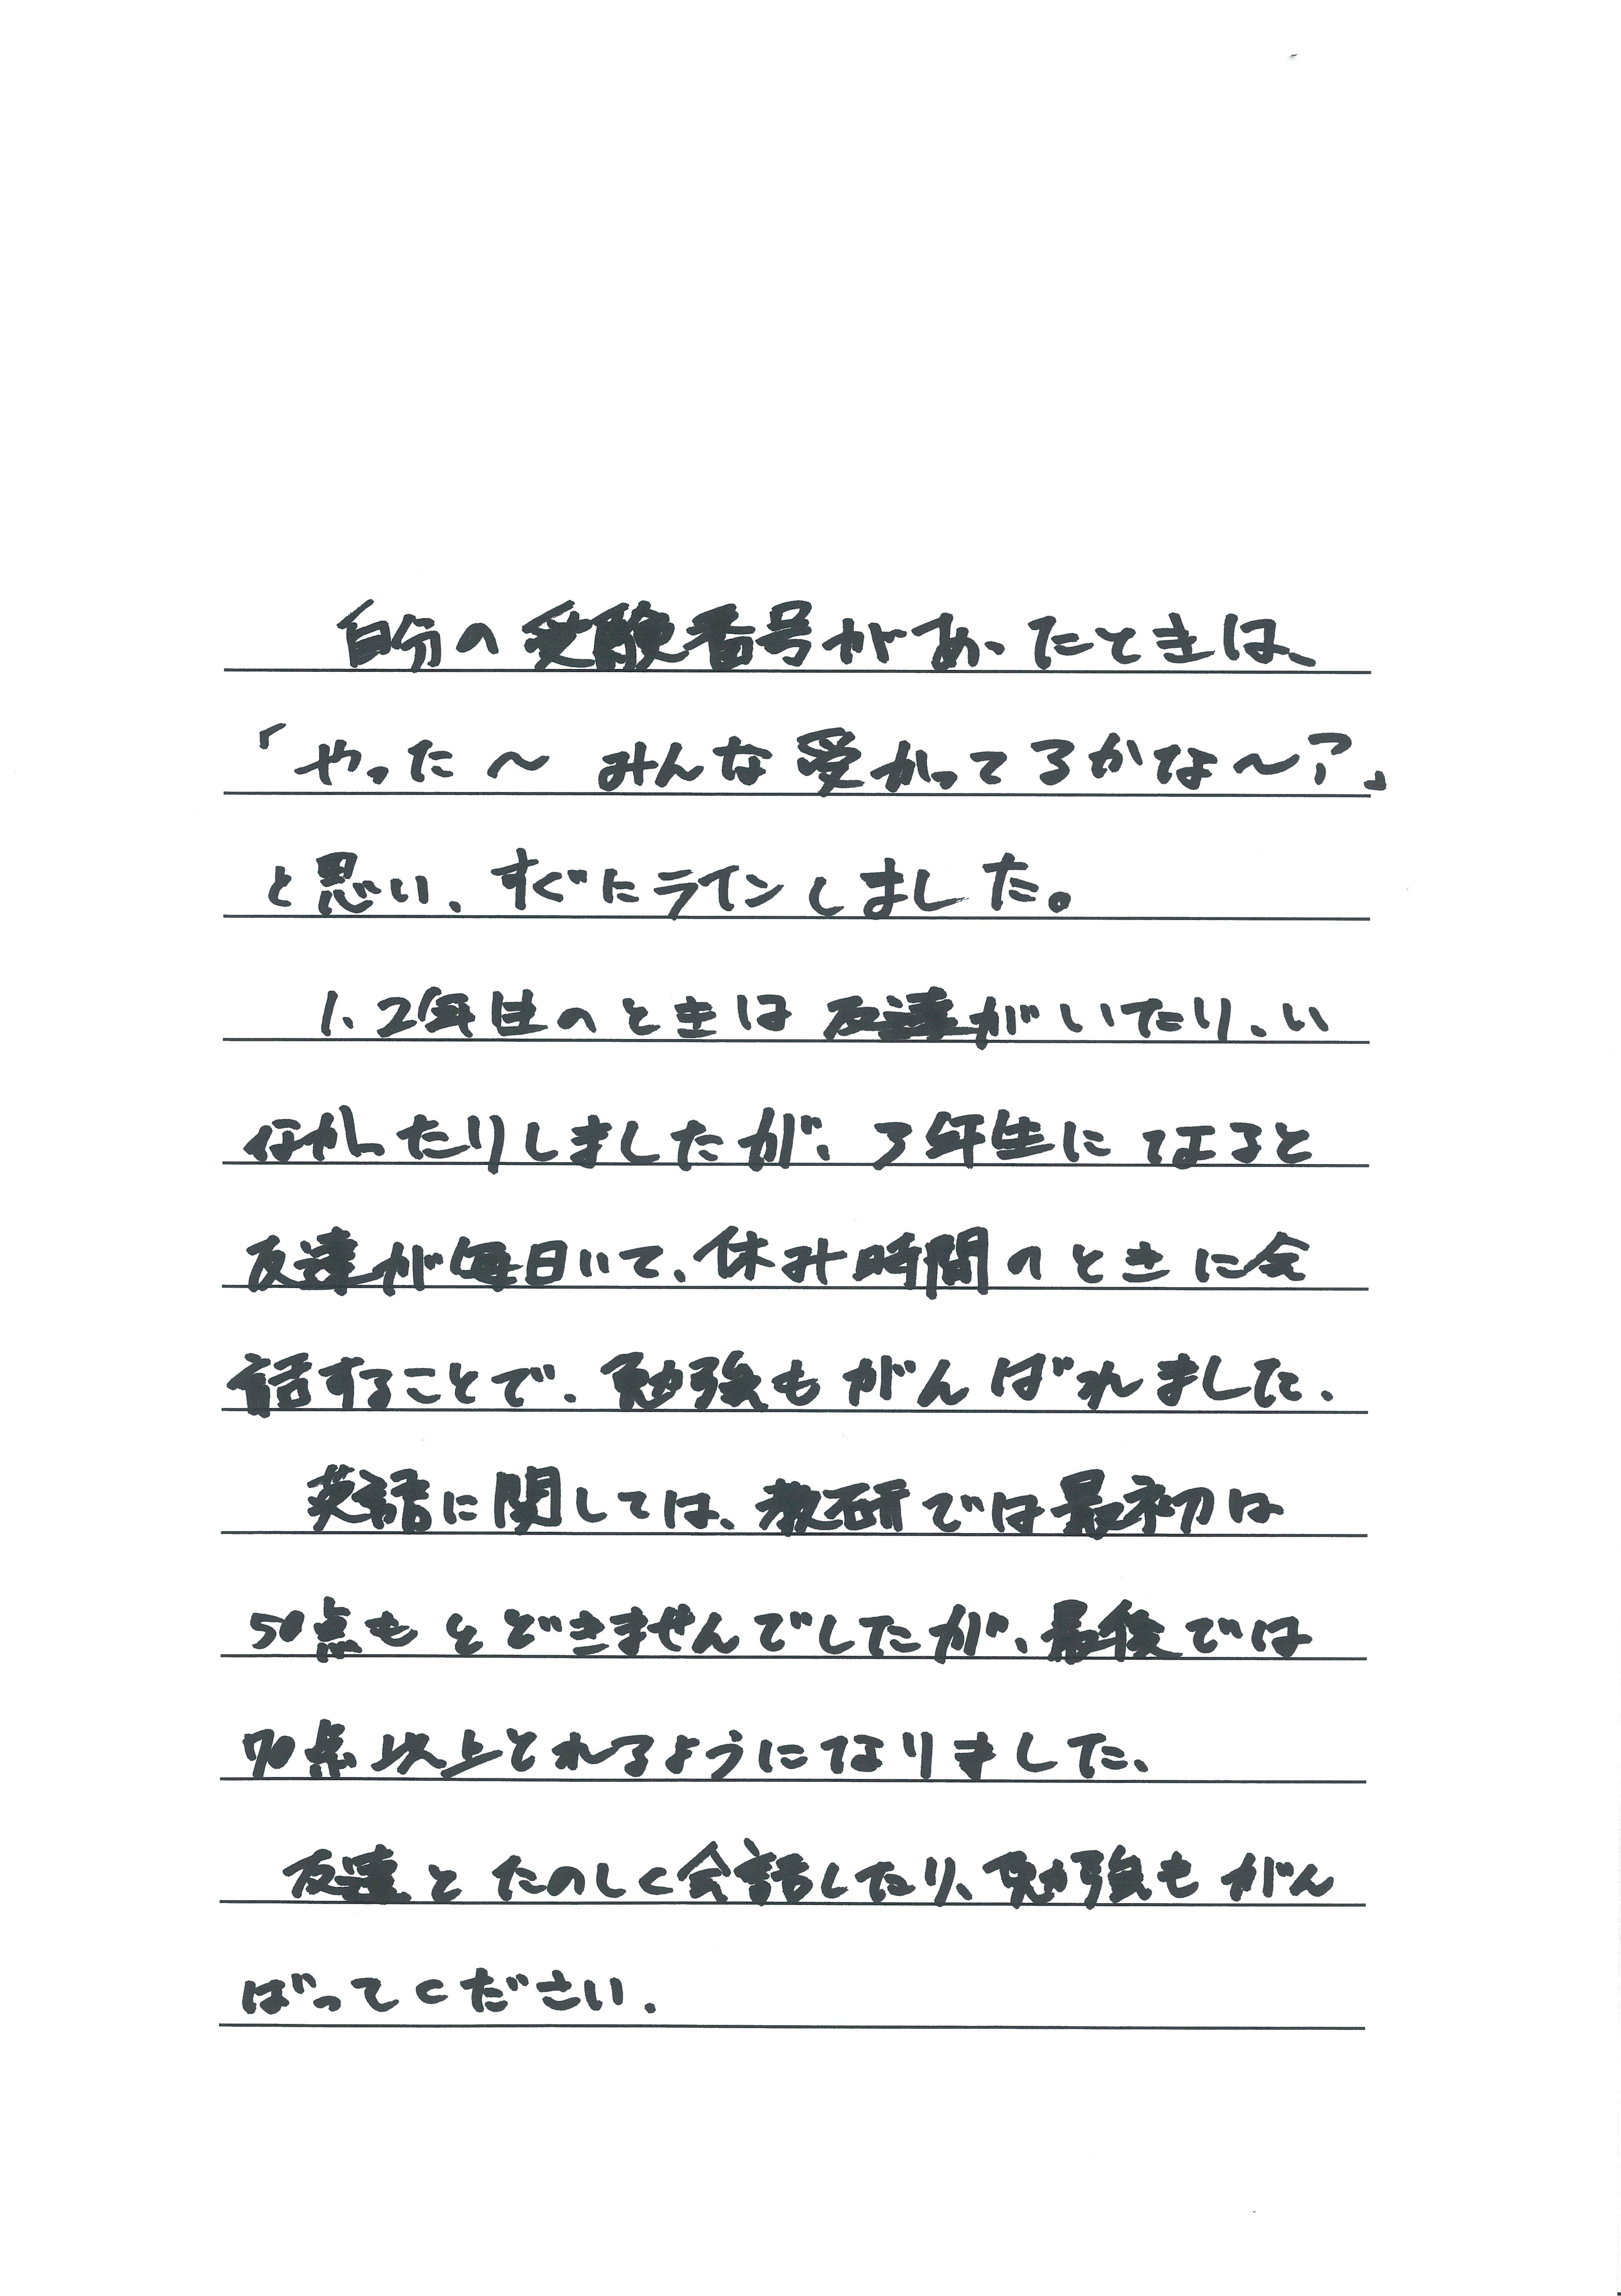 自分の受験番号があったときは、
「やった～ みんな受かってるかな～？」
と思い、すぐにラインしました。
1、2年生のときは友達がいたり、い
なかったりしましたが、3年生になると
友達が毎日いて、休み時間のときに会
話することで、勉強もがんばれました。
英語に関しては、教研では最初は
50点もとどきませんでしたが、最後では
70点以上とれるようになりました、
友達とたのしく会話したり、勉強もがん
ばってください．